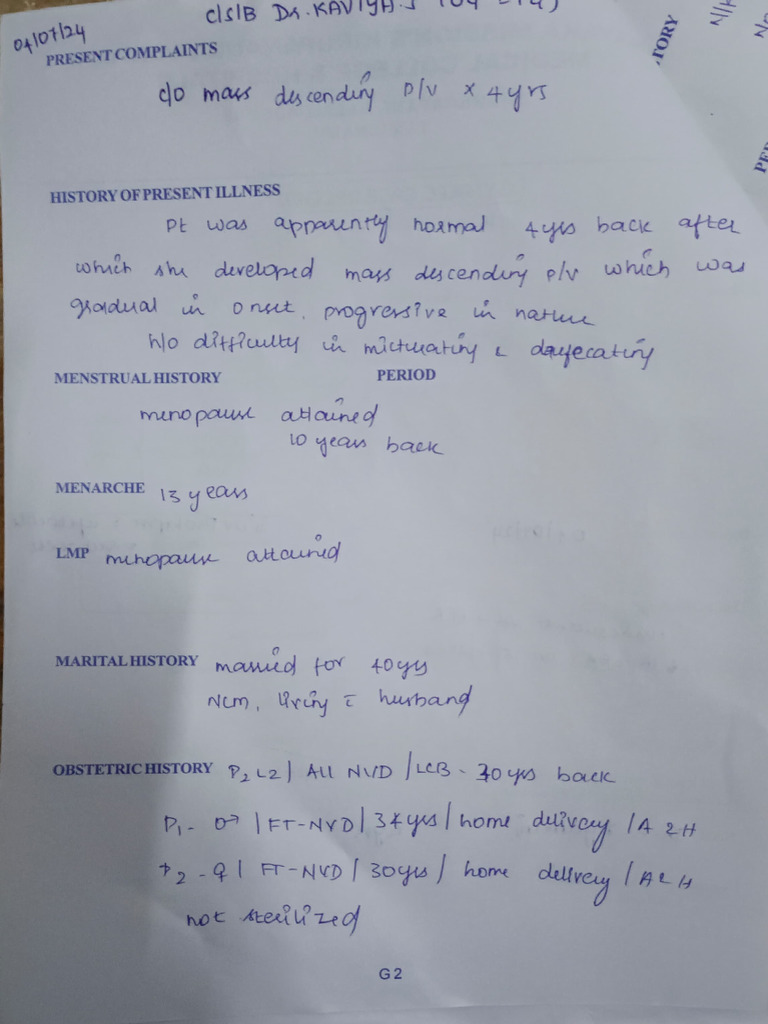 04/07/24
C/S/B Dr. KAVIYA.S
PRESENT COMPLAINTS
c/o mass descending P/V × 4 yrs
HISTORY OF PRESENT ILLNESS
Pt was apparently normal 4yrs back after
which she developed mass descending P/V which was
gradual in onset, progressive in nature
h/o difficulty in micturating & defecating
MENSTRUAL HISTORY PERIOD
menopause attained
10 years back
MENARCHE 13 years
LMP menopause attained
MARITAL HISTORY married for 40yrs
NCM, living c̄ husband
OBSTETRIC HISTORY P2L2 / All NVD / LCB - 30 yrs back
P1 - ♂ / FT-NVD / 34yrs / home delivery / A & H
P2 - ♀ / FT-NVD / 30yrs / home delivery / A & H
not sterilized
G2
TORY